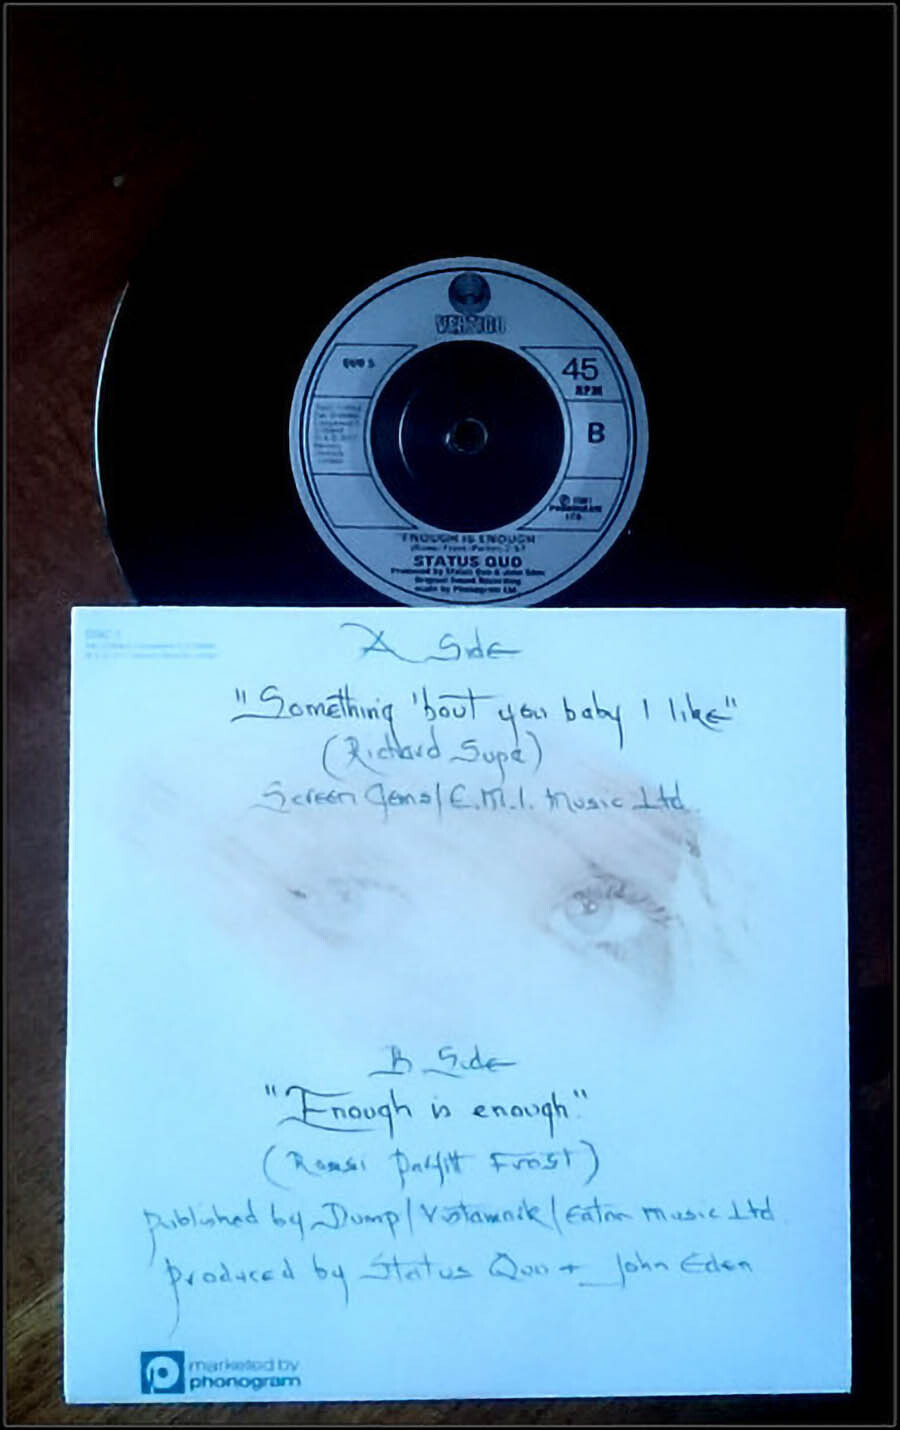 VERTIGO
QUO 5
45
RPM
B
℗ 1981
PHONOGRAM
LTD.
"ENOUGH IS ENOUGH"
STATUS QUO
Produced by Status Quo & John Eden
Original Sound Recording
made by Phonogram Ltd.
A Side
"Something 'bout you baby I like"
(Richard Supa)
Screen Gems/E.M.I. Music Ltd
B Side
"Enough is enough"
(Rossi Parfitt Frost)
published by Dump/Vistamnik/Eaton Music Ltd.
produced by Status Quo + John Eden
marketed by
phonogram